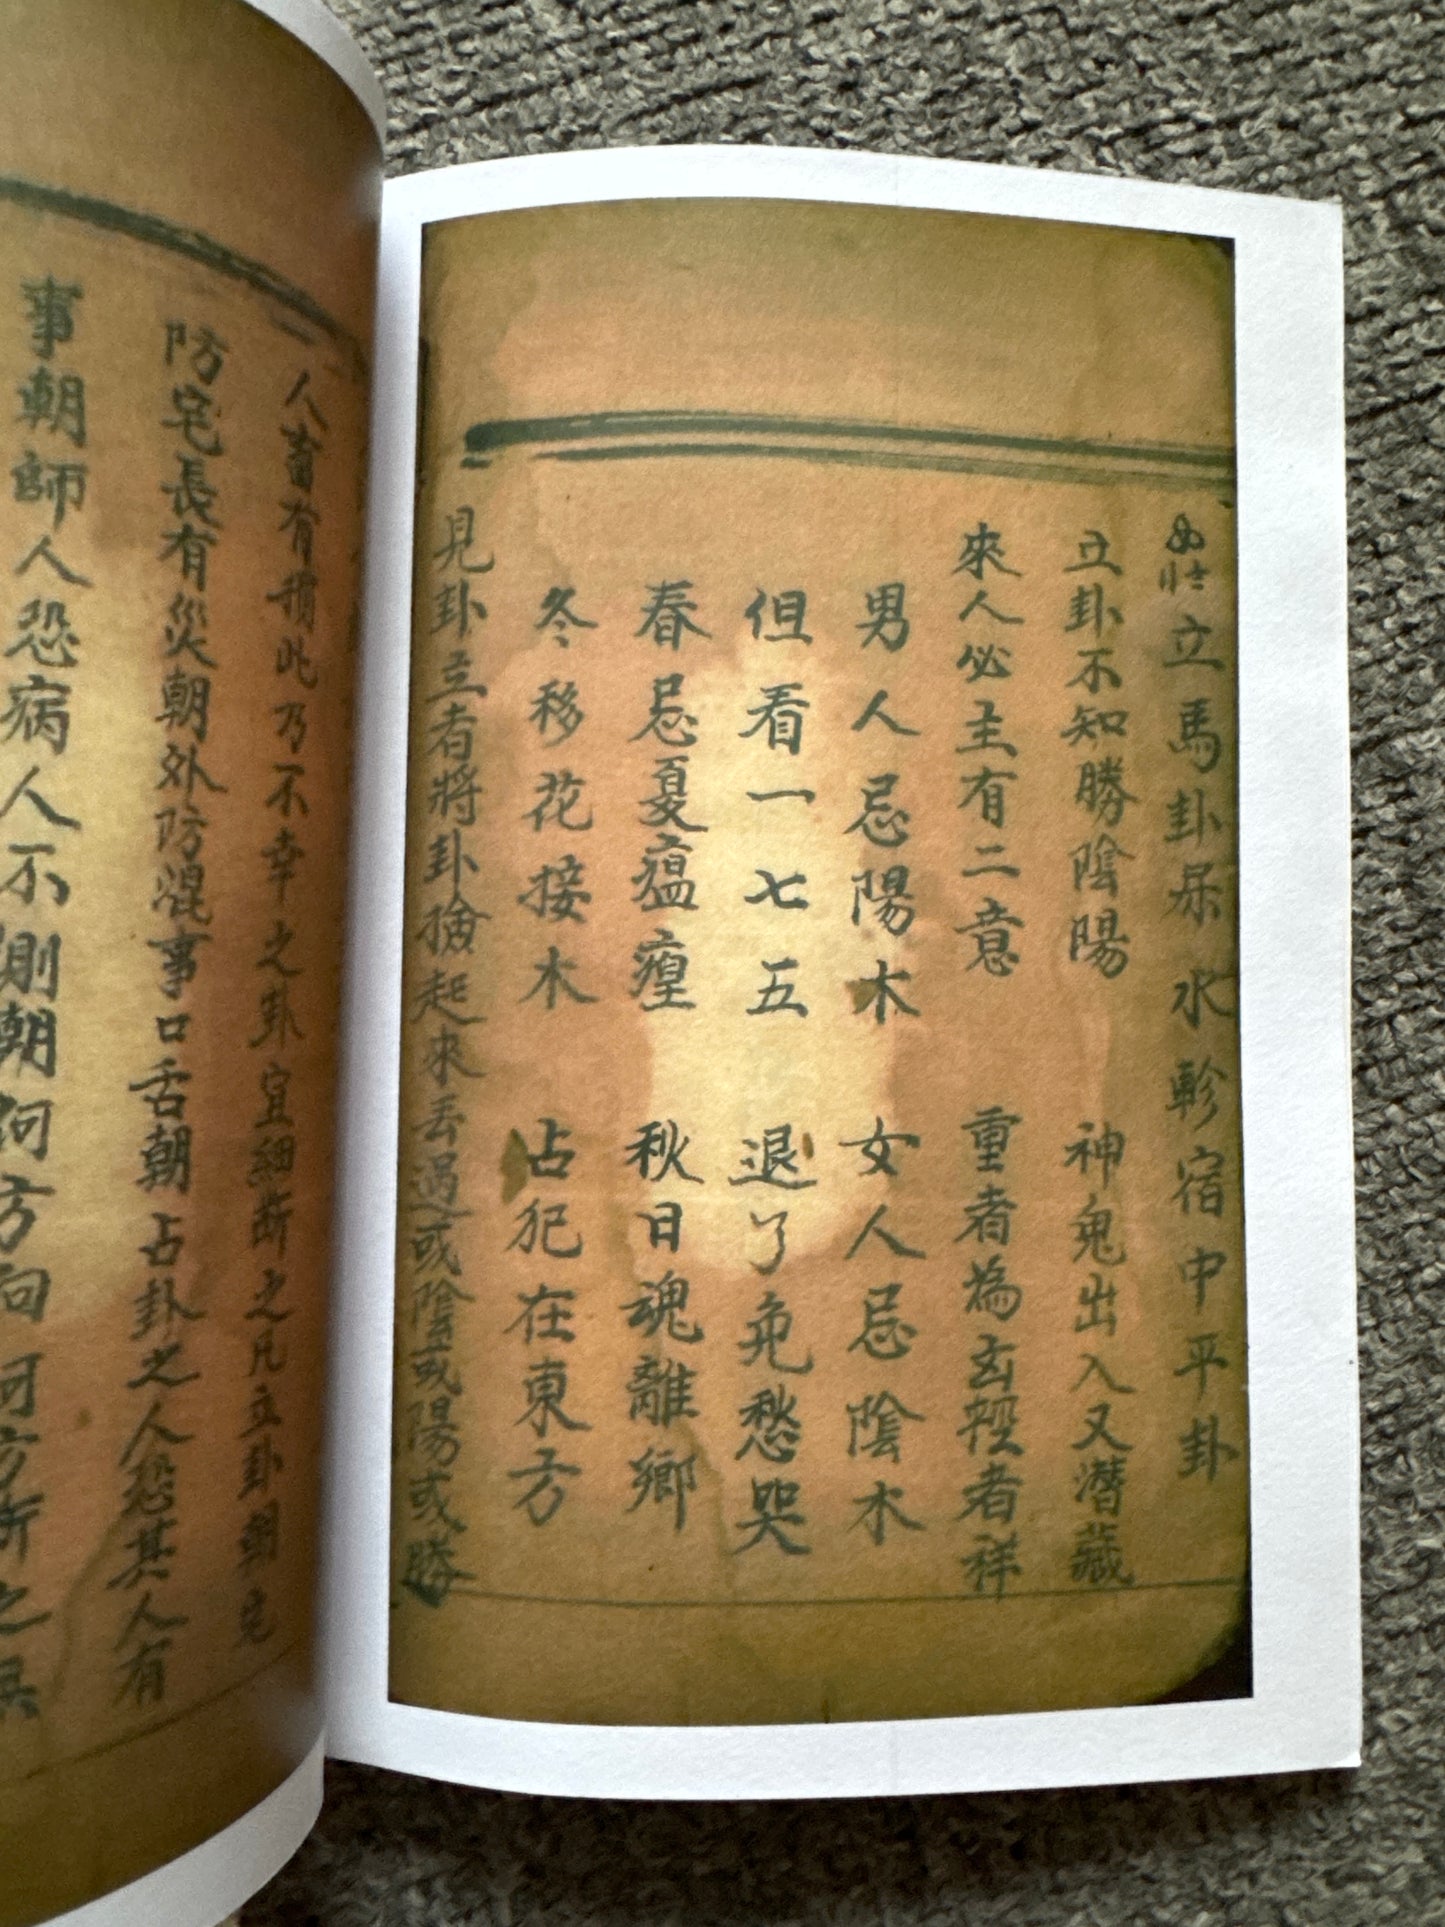 立馬卦屎水軫宿中平卦
立卦不知勝陰陽 神鬼出入又潛藏
來人必主有二意 重者為玄輕者祥
男人忌陽木 女人忌陰木
但看一七五 退了免愁哭
春忌夏瘟瘟 秋日魂離鄉
冬移花接木 占犯在東方
見卦立者將卦撿起來丟過或陰或陽或勝
一人畜有損此乃不幸之卦宜細斷之凡立卦朝
防宅長有災朝外防混事口舌朝占卦之人恐其人有
事朝師人恐病人不測朝何方向何方斷之